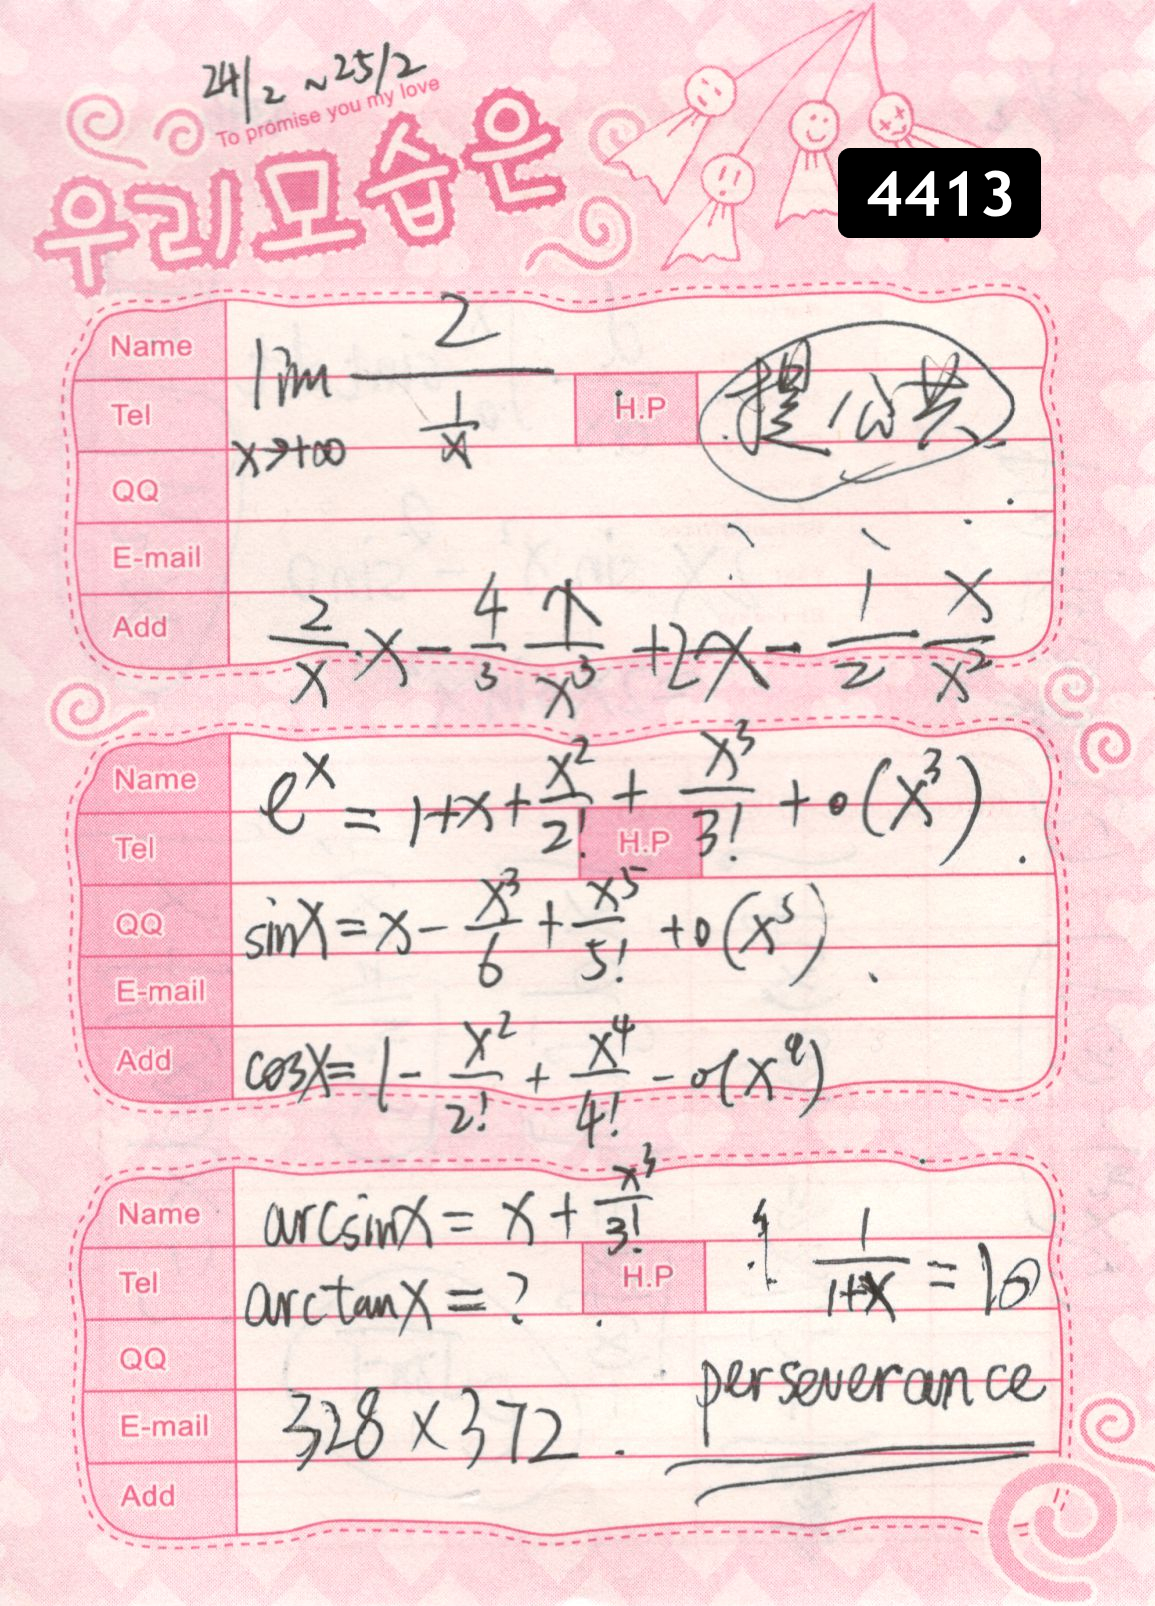 24/2 ~25/2
To promise you my love
우리모습은
4413
Name
Tel
H.P
QQ
E-mail
Add
lim x→+∞ 2 / (1/x)
提公共
2/x · x - 4/3 x/x³ + 2x - 1/2 x/x²
Name
Tel
H.P
QQ
E-mail
Add
e^x = 1+x+ x²/2! + x³/3! + o(x³)
sinx = x - x³/6 + x⁵/5! + o(x⁵)
cosx = 1 - x²/2! + x⁴/4! - o(x⁴)
Name
Tel
H.P
QQ
E-mail
Add
arcsinx = x + x³/3!
arctanx = ?
1/(1+x) = 10
perseverance
328 × 372